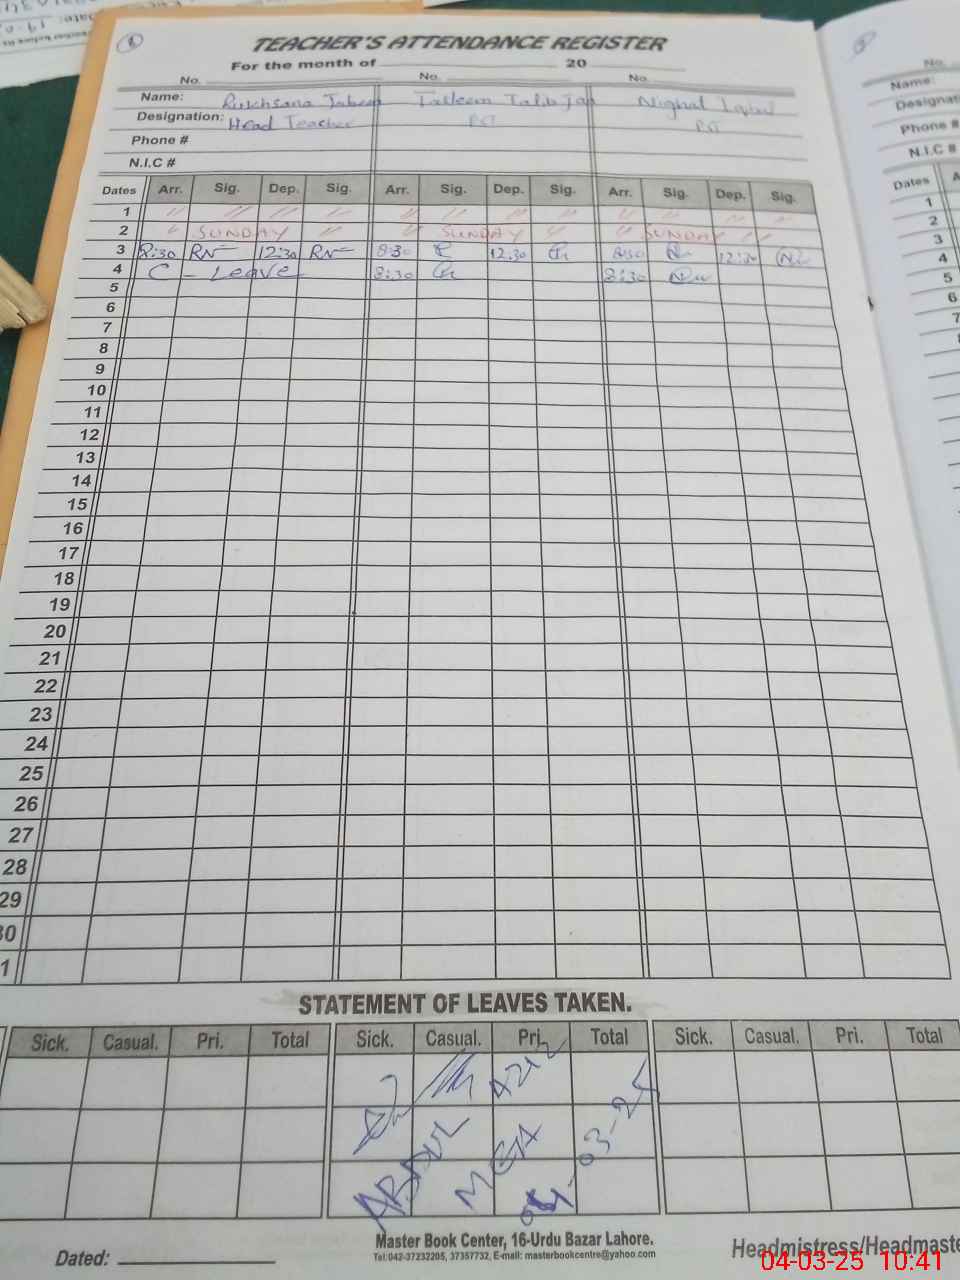 TEACHER'S ATTENDANCE REGISTER
For the month of 20
No. No. No.
Name: Rukhsana Jabeen Talib Jan Nighat Iqbal
Designation: Head Teacher
Phone #
N.I.C #
Dates Arr. Sig. Dep. Sig. Arr. Sig. Dep. Sig. Arr. Sig. Dep. Sig.
1 〃 〃 〃 〃 〃 〃 〃 〃 〃 〃 〃 〃
2 〃 SUNDAY 〃 〃 SUNDAY 〃 〃 SUNDAY 〃
3 8:30 RN 12:30 RN 8:30 12:30 8:30 12:30
4 C - Leave 8:30 8:30
5
6
7
8
9
10
11
12
13
14
15
16
17
18
19
20
21
22
23
24
25
26
27
28
29
30
1
STATEMENT OF LEAVES TAKEN.
Sick. Casual. Pri. Total Sick. Casual. Pri. Total Sick. Casual. Pri. Total
ABDUL AZIZ
MEA
04-03-25
Master Book Center, 16-Urdu Bazar Lahore.
Tel:042-37232205, 37357732, E-mail: masterbookcentre@yahoo.com
Dated:
Headmistress/Headmaste
04-03-25 10:41
No.
Name:
Designati
Phone #
N.I.C #
Dates A
1
2
3
4
5
6
7